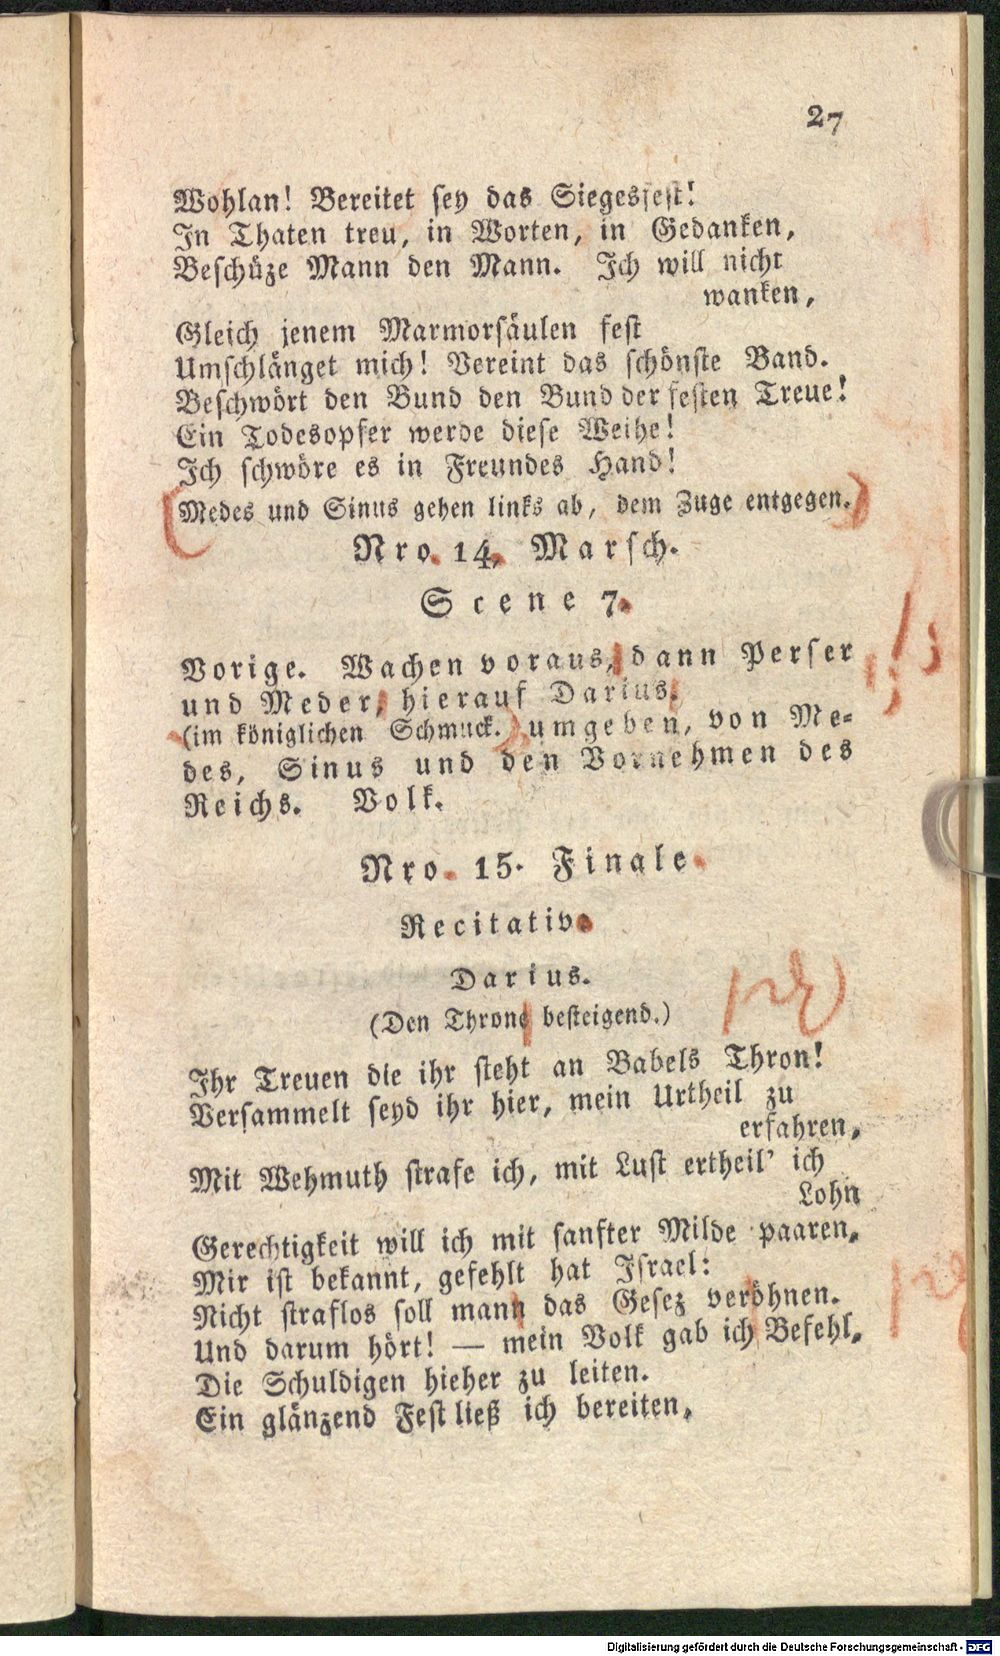 27
Wohlan! Bereitet sey das Siegesfest!
In Thaten treu, in Worten, in Gedanken,
Beschüze Mann den Mann. Ich will nicht
wanken,
Gleich jenem Marmorsäulen fest
Umschlänget mich! Vereint das schönste Band.
Beschwört den Bund den Bund der festen Treue!
Ein Todesopfer werde diese Weihe!
Ich schwöre es in Freundes Hand!
Medes und Sinus gehen links ab, dem Zuge entgegen.
Nro. 14, Marsch.
Scene 7.
Vorige. Wachen voraus, dann Perser
und Meder, hierauf Darius,
(im königlichen Schmuck.) umgeben, von Me-
des, Sinus und den Vornehmen des
Reichs. Volk.
Nro. 15. Finale
Recitativ.
Darius.
(Den Throne besteigend.)
Ihr Treuen die ihr steht an Babels Thron!
Versammelt seyd ihr hier, mein Urtheil zu
erfahren,
Mit Wehmuth strafe ich, mit Lust ertheil' ich
Lohn
Gerechtigkeit will ich mit sanfter Milde paaren,
Mir ist bekannt, gefehlt hat Israel:
Nicht straflos soll mann das Gesez veröhnen.
Und darum hört! — mein Volk gab ich Befehl,
Die Schuldigen hieher zu leiten.
Ein glänzend Fest ließ ich bereiten,
Digitalisierung gefördert durch die Deutsche Forschungsgemeinschaft - DFG